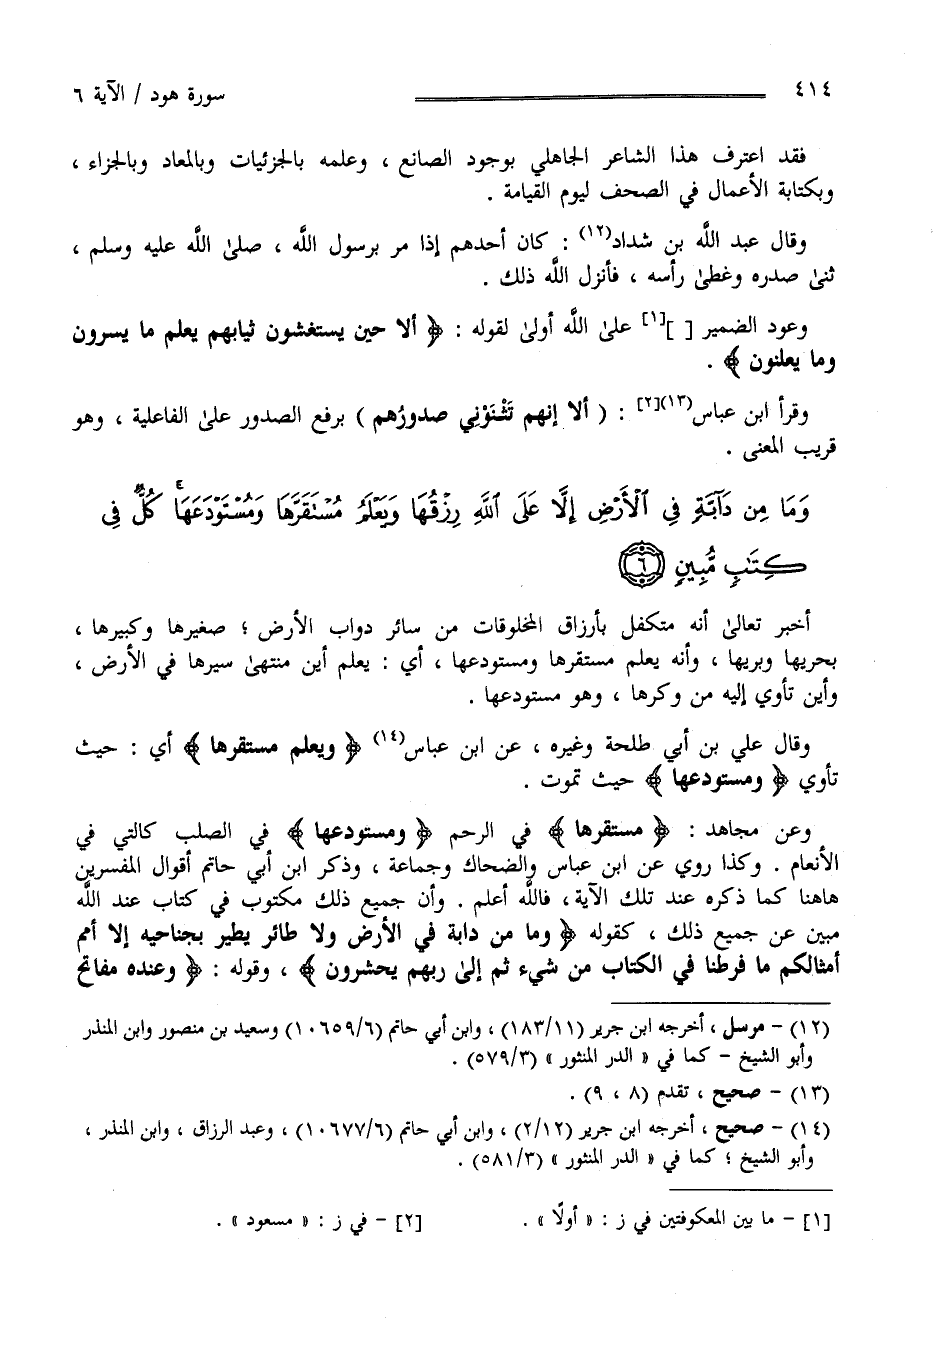 ٤١٤
سورة هود / الآية ٦
فقد اعترف هذا الشاعر الجاهلي بوجود الصانع ، وعلمه بالجزئيات وبالمعاد وبالجزاء ،
وبكتابة الأعمال في الصحف ليوم القيامة .
وقال عبد اللَّه بن شداد(١٢) : كان أحدهم إذا مر برسول اللَّه ، صلىٰ اللَّه عليه وسلم ،
ثنىٰ صدره وغطىٰ رأسه ، فأنزل اللَّه ذلك .
وعود الضمير [ ][١] علىٰ اللَّه أولىٰ لقوله : ﴿ ألا حين يستغشون ثيابهم يعلم ما يسرون
وما يعلنون ﴾ .
وقرأ ابن عباس(١٣)[٢] : ( ألا إنهم تَثْنَوْنِي صدورُهم ) برفع الصدور علىٰ الفاعلية ، وهو
قريب المعنى .
وَمَا مِن دَآبَّةٍ فِي ٱلْأَرْضِ إِلَّا عَلَى ٱللَّهِ رِزْقُهَا وَيَعْلَمُ مُسْتَقَرَّهَا وَمُسْتَوْدَعَهَا ۚ كُلٌّ فِي
كِتَٰبٍ مُّبِينٍ ٦
أخبر تعالىٰ أنه متكفل بأرزاق المخلوقات من سائر دواب الأرض ؛ صغيرها وكبيرها ،
بحريها وبريها ، وأنه يعلم مستقرها ومستودعها ، أي : يعلم أين منتهىٰ سيرها في الأرض ،
وأين تأوي إليه من وكرها ، وهو مستودعها .
وقال علي بن أبي طلحة وغيره ، عن ابن عباس(١٤) ﴿ ويعلم مستقرها ﴾ أي : حيث
تأوي ﴿ ومستودعها ﴾ حيث تموت .
وعن مجاهد : ﴿ مستقرها ﴾ في الرحم ﴿ ومستودعها ﴾ في الصلب كالتي في
الأنعام . وكذا روي عن ابن عباس والضحاك وجماعة ، وذكر ابن أبي حاتم أقوال المفسرين
هاهنا كما ذكره عند تلك الآية، فاللَّه أعلم . وأن جميع ذلك مكتوب في كتاب عند اللَّه
مبين عن جميع ذلك ، كقوله ﴿ وما من دابة في الأرض ولا طائر يطير بجناحيه إلا أمم
أمثالكم ما فرطنا في الكتاب من شيء ثم إلىٰ ربهم يحشرون ﴾ ، وقوله : ﴿ وعنده مفاتح
(١٢) - مرسل ، أخرجه ابن جرير (١٨٣/١١) ، وابن أبي حاتم (١٠٦٥٩/٦) وسعيد بن منصور وابن المنذر
وأبو الشيخ - كما في « الدر المنثور » (٥٧٩/٣) .
(١٣) - صحيح ، تقدم (٨ ، ٩) .
(١٤) - صحيح ، أخرجه ابن جرير (٢/١٢) ، وابن أبي حاتم (١٠٦٧٧/٦) ، وعبد الرزاق ، وابن المنذر ،
وأبو الشيخ ؛ كما في « الدر المنثور » (٥٨١/٣) .
[١] - ما بين المعكوفتين في ز : « أولًا » .
[٢] - في ز : « مسعود » .